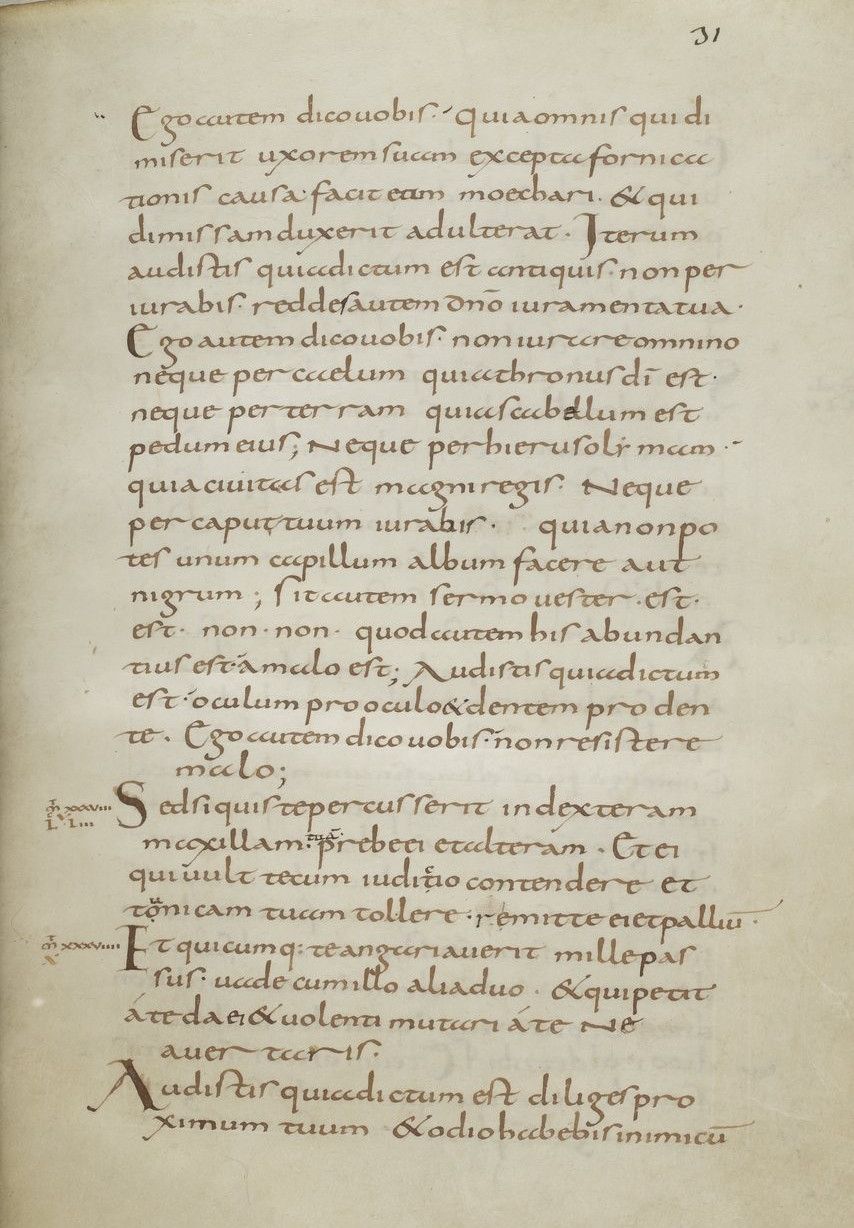 31
Ego autem dico uobis· Quia omnis qui di
miserit uxorem suam excepta fornica
tionis causa· facit eam moechari· & qui
dimissam duxerit adulterat· Iterum
audistis quia dictum est antiquis· non per
iurabis· reddes autem dnō iuramenta tua·
Ego autem dico uobis· non iurare omnino
neque per caelum quia thronus dī est·
neque per terram quia scabellum est
pedum eius; Neque per hierusolymam·
quia ciuitas est magni regis· Neque
per caput tuum iurabis· quia non po
tes unum capillum album facere aut
nigrum; sit autem sermo uester· est·
est· non· non· quod autem his abundan
tius est· á malo est; Audistis quia dictum
est· oculum pro oculo & dentem pro den
te· Ego autem dico uobis· non resistere
malo;
m̄ xxxviii Sed si quis te percusserit in dexteram
L· Liii
maxillam· tuā· prebe ei et alteram· Et ei
qui uult tecum iuditio contendere et
tonicam tuam tollere· remitte ei et palliū·
m̄ xxxviiii Et quicumq: te angariauerit mille pas
sus· uade cum illo alia duo· & qui petit
á te da ei & uolenti mutari á te Ne
auertaris·
Audistis quia dictum est diliges pro
ximum tuum & odio habebis inimicū